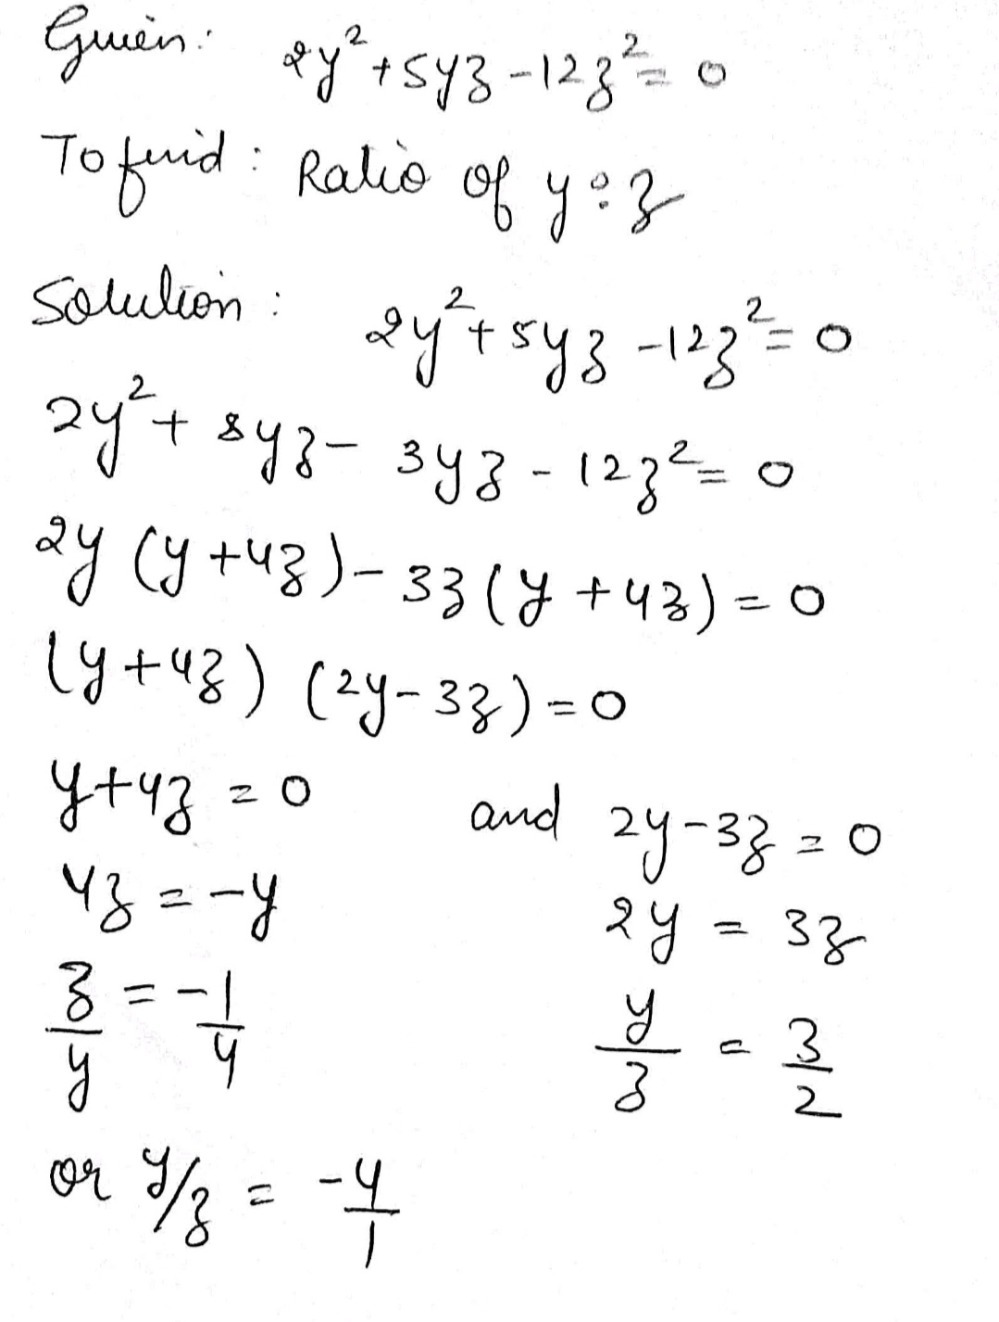 Given: 2y²+5yz-12z²=0
To find: Ratio of y:z
Solution: 2y²+5yz-12z²=0
2y²+8yz-3yz-12z²=0
2y(y+4z)-3z(y+4z)=0
(y+4z)(2y-3z)=0
y+4z=0 and 2y-3z=0
4z=-y 2y=3z
z/y=-1/4 y/z=3/2
or y/z=-4/1